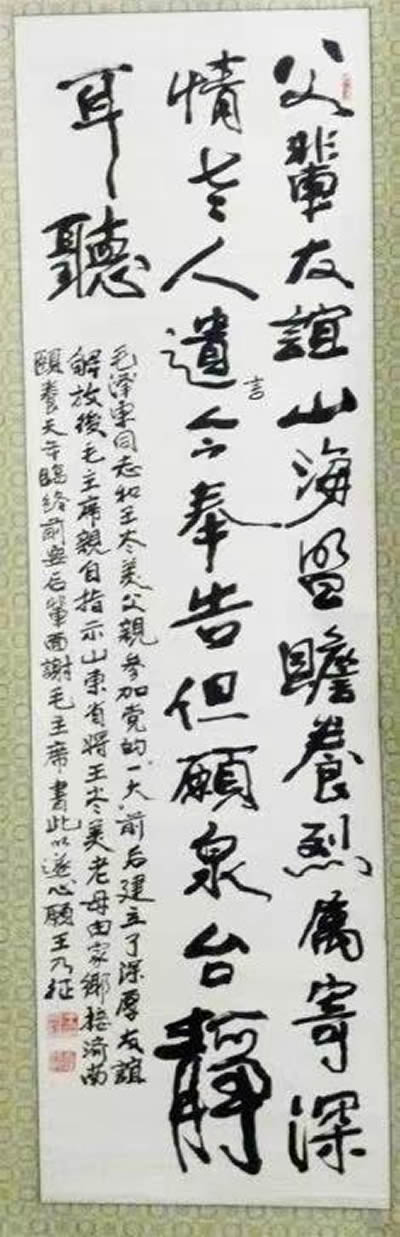 父輩友誼山海盟贍養烈屬寄深
情老人遺言今奉告但願泉台靜
耳聽
毛澤東同志和王尽美父親參加党的一大前后建立了深厚友誼
解放後毛主席親自指示山東省將王尽美老母由家鄉接濟南
頤養天年臨終前后輩面謝毛主席書此以遂心願王乃征